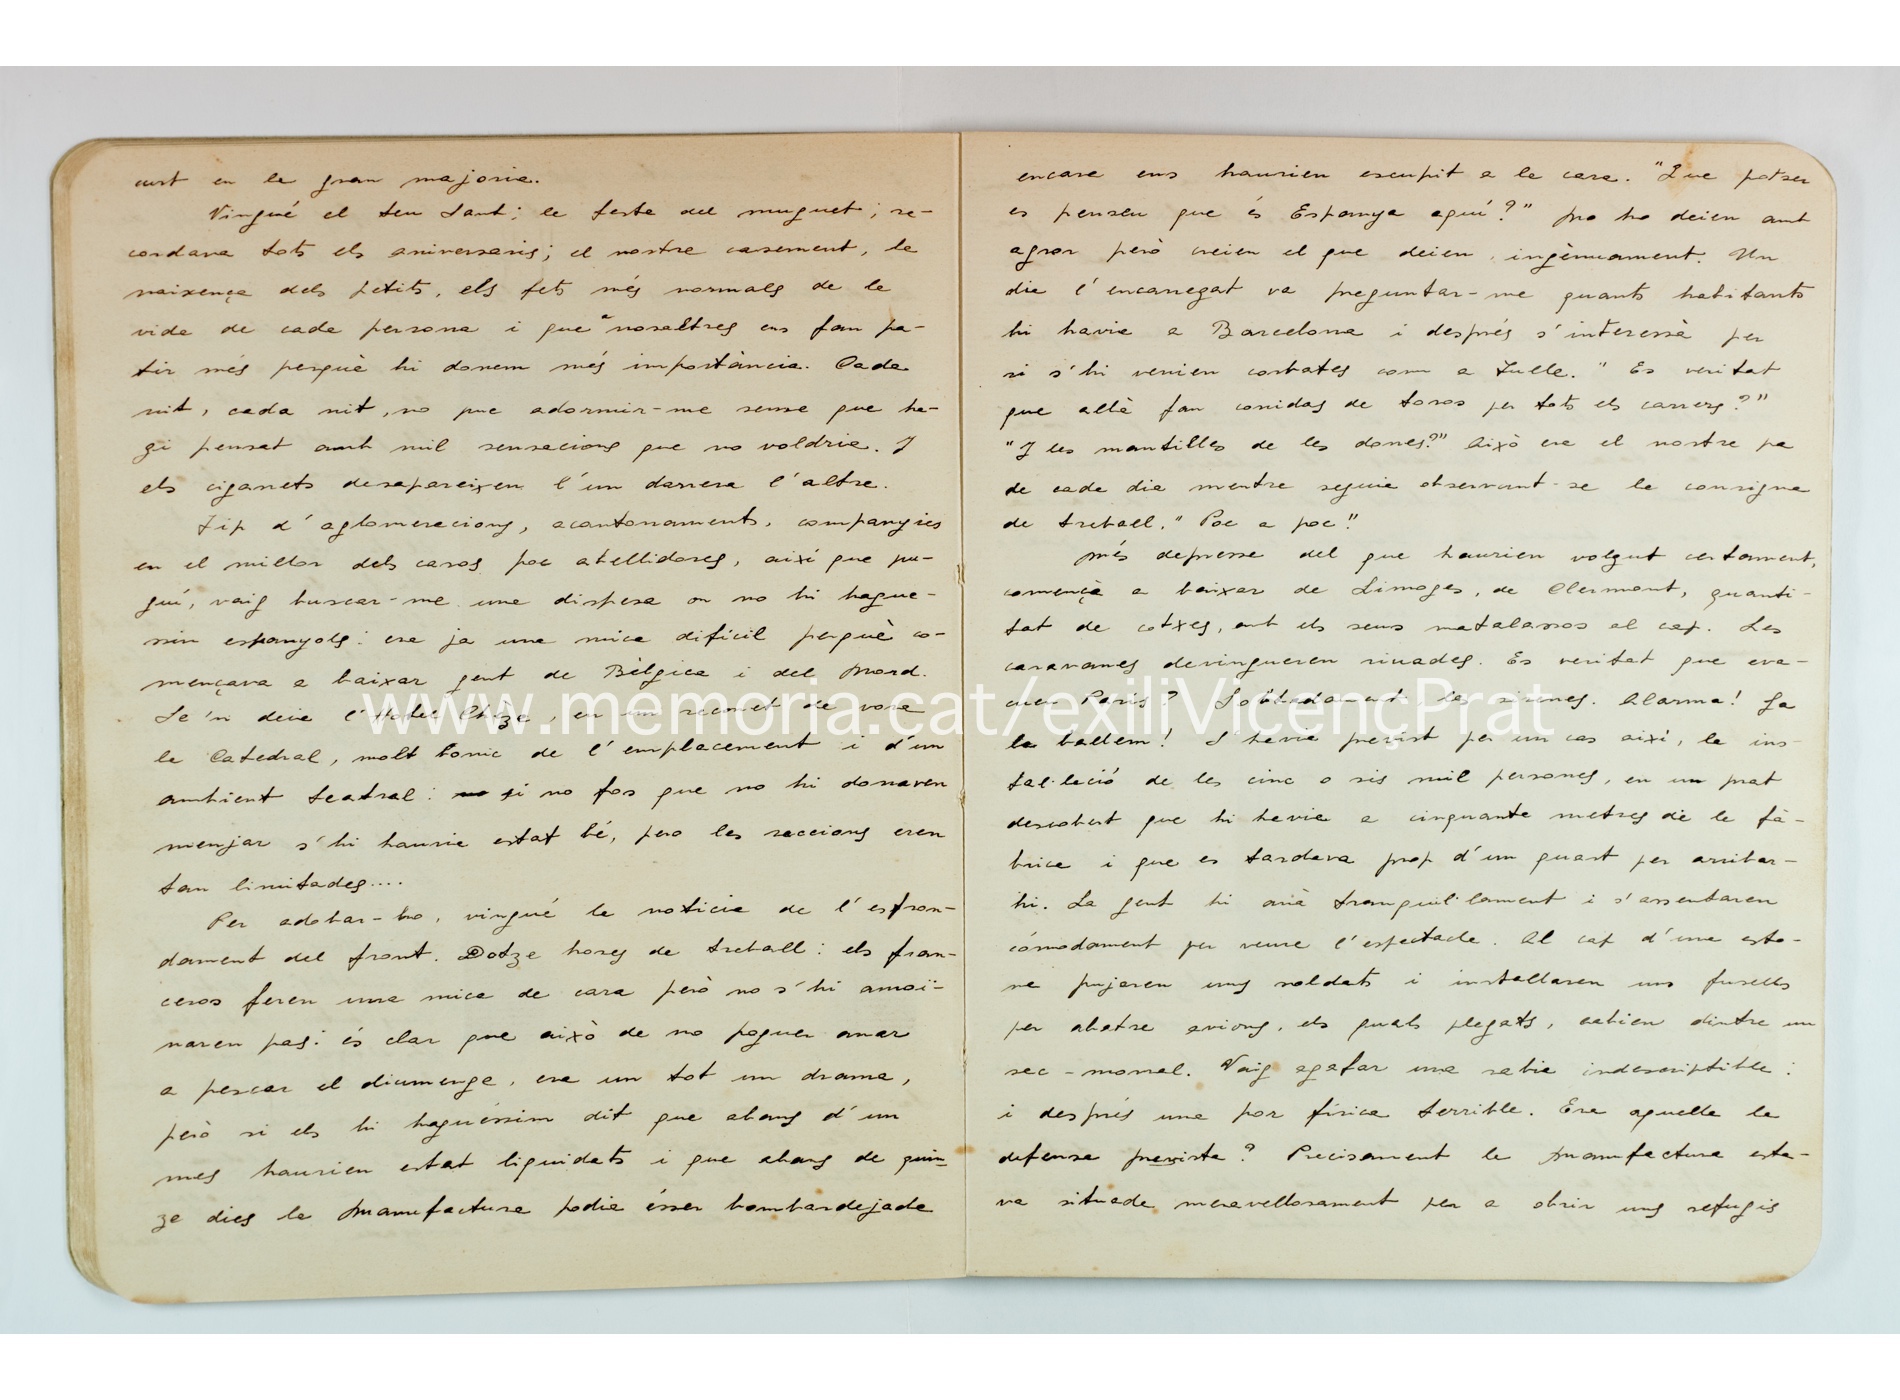 curt en la gran majoria.
Vingué el seu Sant; la festa del muguet; re-
cordava tots els aniversaris; el nostre casament, la
naixença dels petits, els fets més normals de la
vida de cada persona i que a nosaltres ens fan pa-
tir més perquè hi donem més importància. Cada
nit, cada nit, no puc adormir-me sense que ha-
gi pensat amb mil sensacions que no voldria. I
els cigarrets desapareixen l'un darrera l'altre.
Tip d'aglomeracions, acantonaments, companyies
en el millor dels casos poc abellidores, així que pu-
guí, vaig buscar-me una dispesa on no hi hague-
ssin espanyols: era ja una mica difícil perquè co-
mençava a baixar gent de Bèlgica i del Nord.
Se'n deia l'Hotel Chèze, en un reconet de vora
la Catedral, molt bonic de l'emplacement i d'un
ambient teatral: si no fos que no hi donaven
menjar s'hi hauria estat bé, pero les raccions eren
tan limitades....
Per adobar-ho, vingué la noticia de l'esfron-
dament del front. Dotze hores de treball: els fran-
cesos feren una mica de cara però no s'hi amoï-
naren pas: és clar que això de no poguer anar
a pescar el diumenge, era un tot un drama,
però si els hi haguéssim dit que abans d'un
mes haurien estat liquidats i que abans de quin-
ze dies la Manufactura podia ésser bombardejada
encara ens haurien escupit a la cara. "Que potser
es penseu que és Espanya aquí?" No ho deien amb
agror però creien el que deien, ingènuament. Un
dia l'encarregat va preguntar-me quants habitants
hi havia a Barcelona i després s'interessà per
si s'hi venien corbates com a Tulle. "Es veritat
que allà fan corridas de toros per tots els carrers?"
"I les mantilles de les dones?" Això era el nostre pa
de cada dia mentre seguia observant-se la consigna
de treball, "Poc a poc!"
Més depressa del que haurien volgut certament,
començà a baixar de Limoges, de Clermont, quanti-
tat de cotxes, amb els seus matalassos al cap. Les
caravanes devingueren riuades. Es veritat que eva-
cuen Paris? Sobtadament, les sirenes. Alarma! Ja
la ballem! S'havia previst per un cas així, la ins-
tal·lació de les cinc o sis mil persones, en un prat
descobert que hi havia a cinquanta metres de la fà-
brica i que es tardava prop d'un quart per arribar-
hi. La gent hi anà tranquil·lament i s'assentaren
còmodament per veure l'espectacle. Al cap d'una esto-
na pujaren uns soldats i installaren uns fusells
per abatre avions, els quals plegats, cabien dintre un
sac-morral. Vaig agafar una rabia indescriptible:
i després una por física terrible. Era aquella la
defensa prevista? Precisament la Manufactura esta-
va situada meravellosament per a obrir uns refugis
www.memoria.cat/exiliVicençPrat